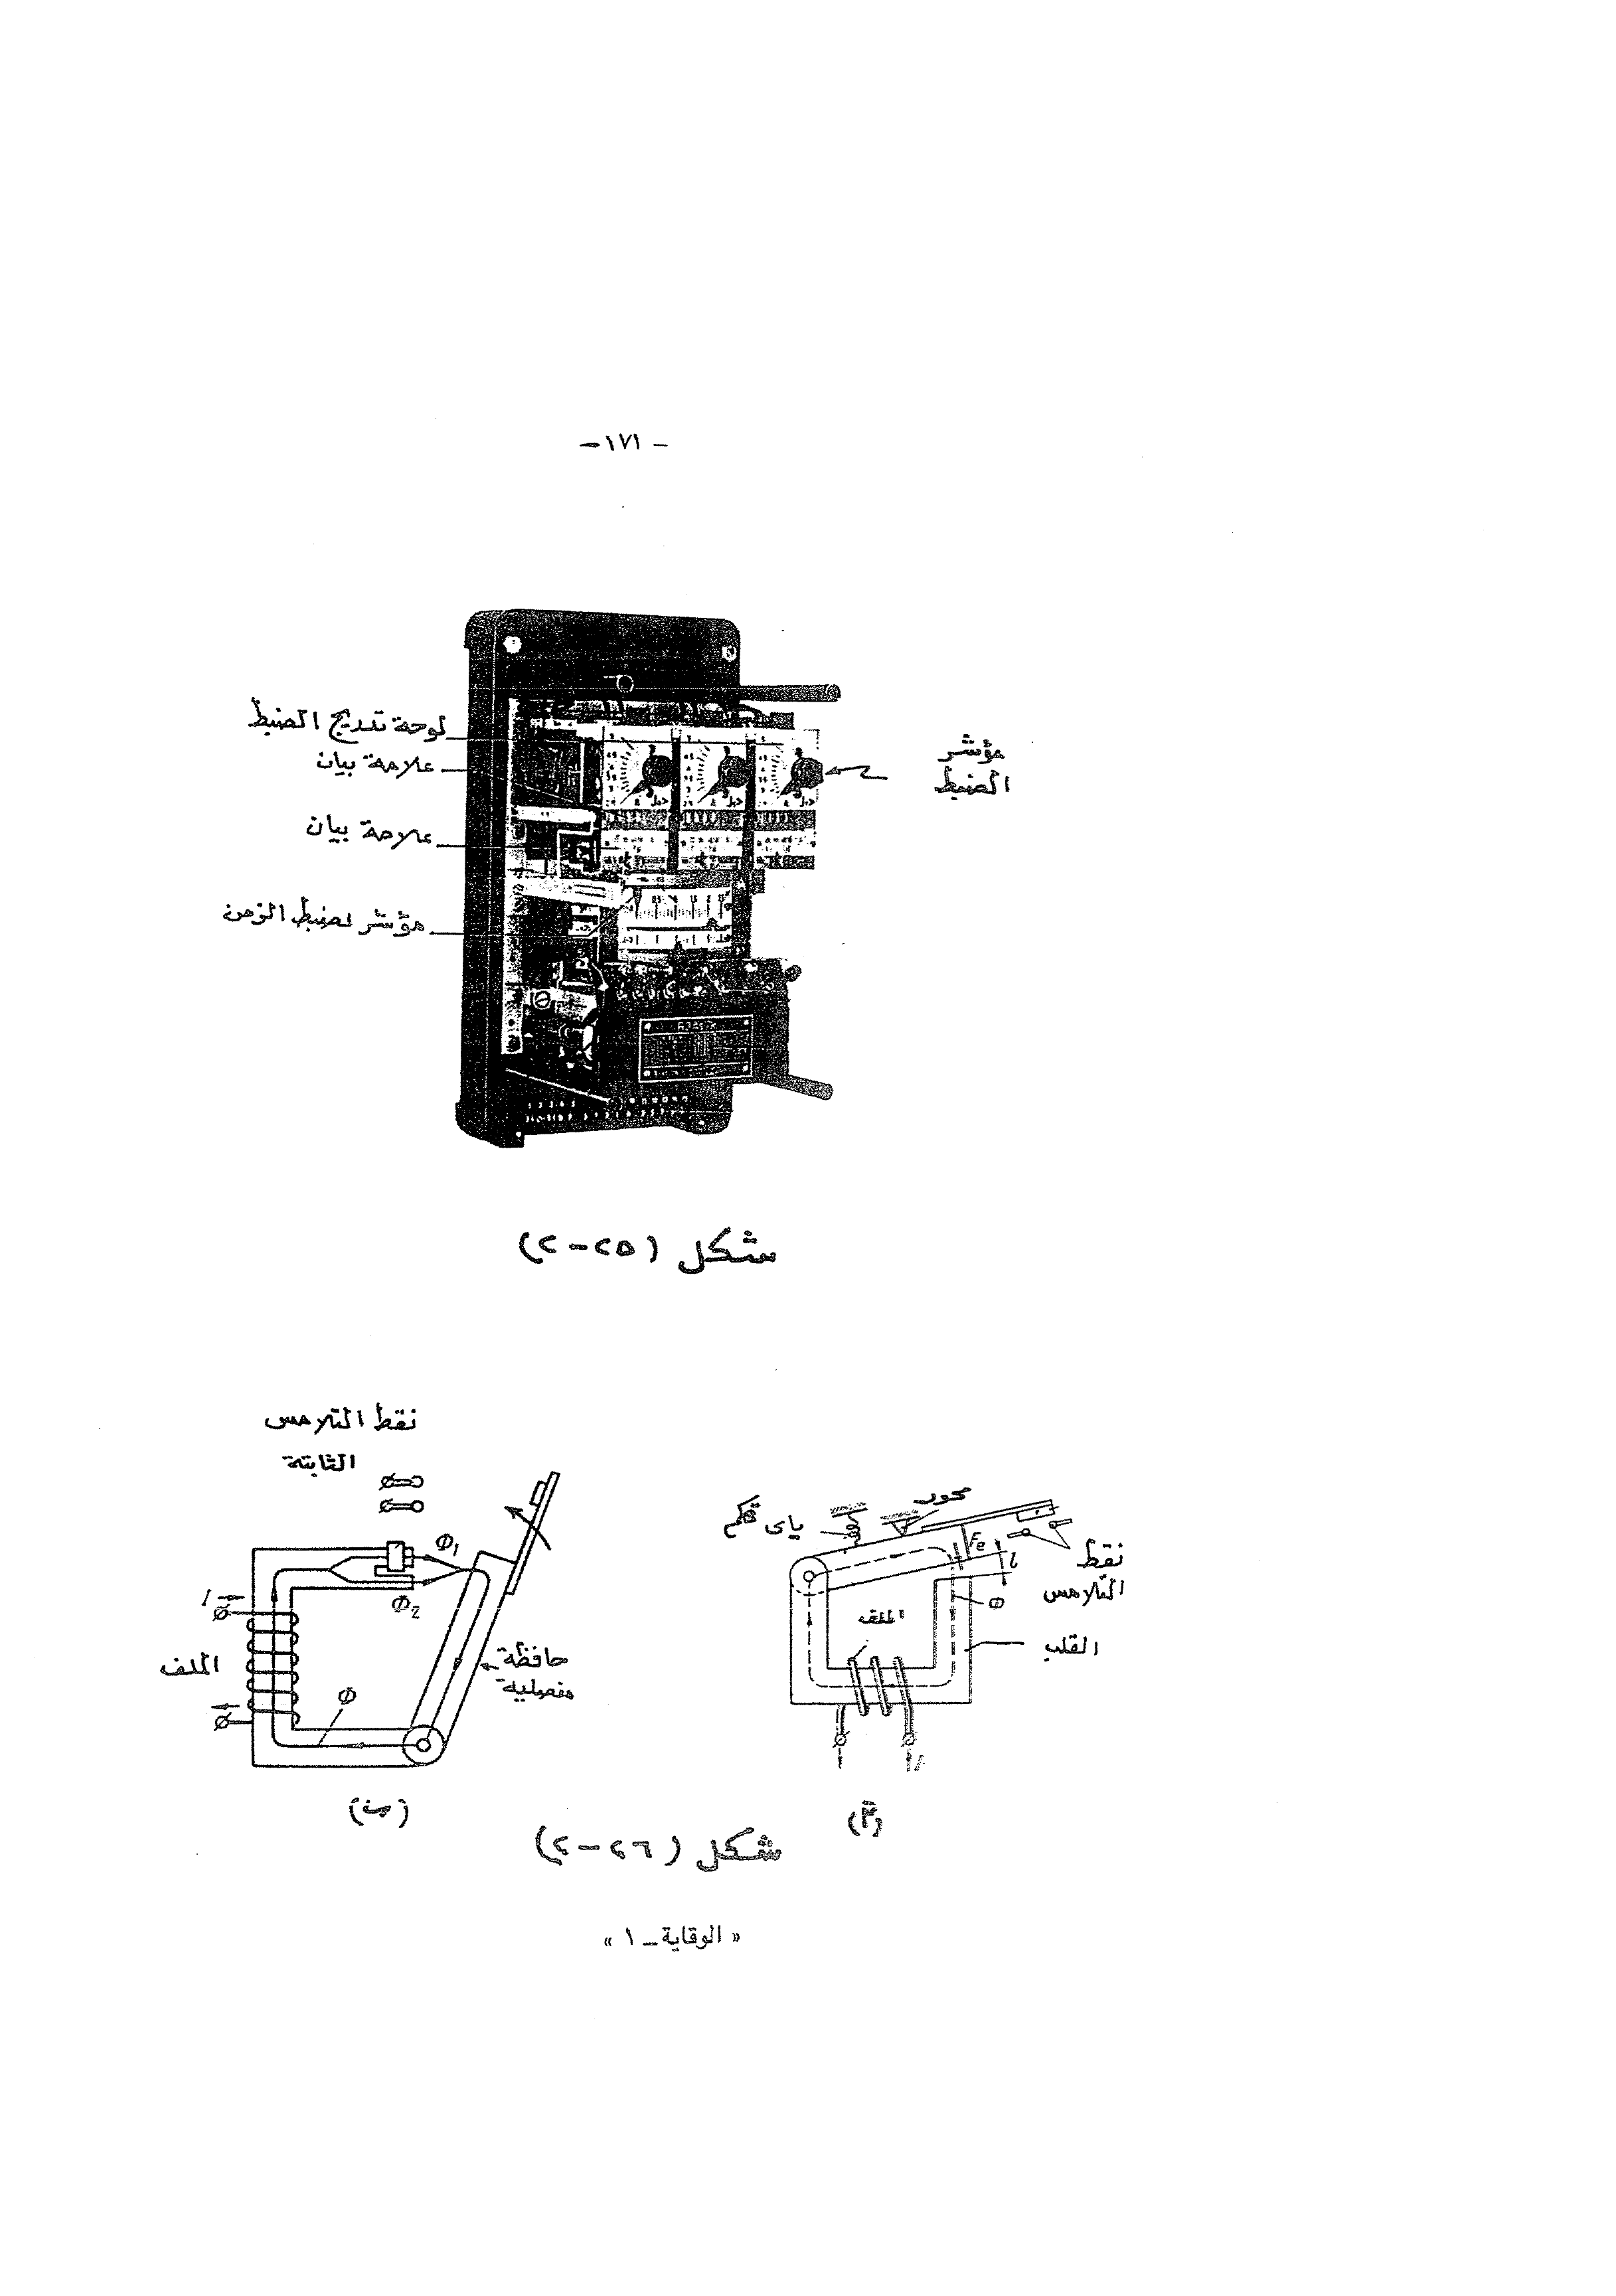 - ١٧١ -
لوحة تدريج الضبط
علامة بيان
علامة بيان
مؤشر لضبط الزمن
مؤشر
الضبط
شكل (٢٥-٢)
نقط التلامس
الثابتة
Φ1
Φ2
I
الملف
Φ
حافظة
مفصلية
(ب)
ياى تحكم
محور
Fe
l
نقط
التلامس
Φ
الملف
القلب
I
(أ)
شكل (٢٦-٢)
« الوقاية – ١ »